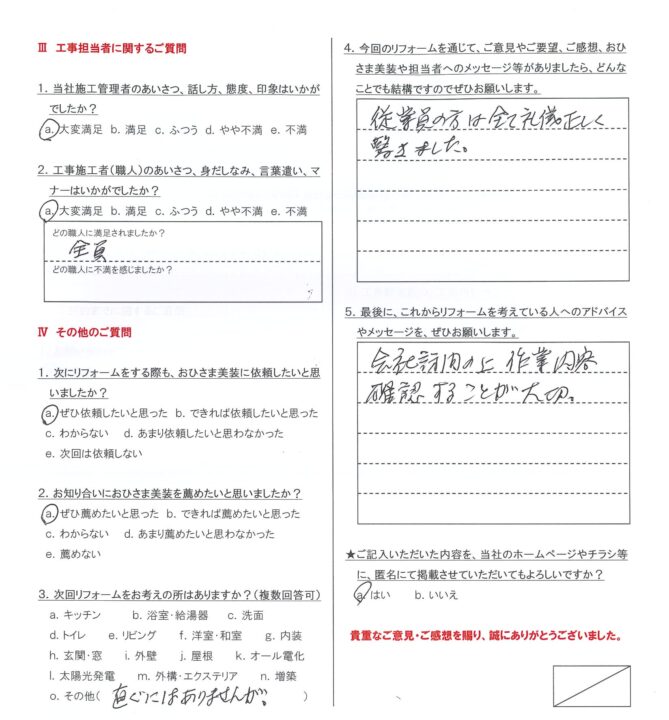 Ⅲ 工事担当者に関するご質問
1. 当社施工管理者のあいさつ、話し方、態度、印象はいかが
でしたか?
a. 大変満足 b. 満足 c. ふつう d. やや不満 e. 不満
2. 工事施工者(職人)のあいさつ、身だしなみ、言葉遣い、マ
ナーはいかがでしたか?
a. 大変満足 b. 満足 c. ふつう d. やや不満 e. 不満
どの職人に満足されましたか?
全員
どの職人に不満を感じましたか?
Ⅳ その他のご質問
1. 次にリフォームをする際も、おひさま美装に依頼したいと思
いましたか?
a. ぜひ依頼したいと思った b. できれば依頼したいと思った
c. わからない d. あまり依頼したいと思わなかった
e. 次回は依頼しない
2. お知り合いにおひさま美装を薦めたいと思いましたか?
a. ぜひ薦めたいと思った b. できれば薦めたいと思った
c. わからない d. あまり薦めたいと思わなかった
e. 薦めない
3. 次回リフォームをお考えの所はありますか?(複数回答可)
a. キッチン b. 浴室・給湯器 c. 洗面
d. トイレ e. リビング f. 洋室・和室 g. 内装
h. 玄関・窓 i. 外壁 j. 屋根 k. オール電化
l. 太陽光発電 m. 外構・エクステリア n. 増築
o. その他( 直ぐにはありませんが。 )
4. 今回のリフォームを通じて、ご意見やご要望、ご感想、おひ
さま美装や担当者へのメッセージ等がありましたら、どんな
ことでも結構ですのでぜひお願いします。
従業員の方は全て礼儀正しく
驚きました。
5. 最後に、これからリフォームを考えている人へのアドバイス
やメッセージを、ぜひお願いします。
会社訪問の上 作業内容
確認することが大切。
★ご記入いただいた内容を、当社のホームページやチラシ等
に、匿名にて掲載させていただいてもよろしいですか?
a. はい b. いいえ
貴重なご意見・ご感想を賜り、誠にありがとうございました。